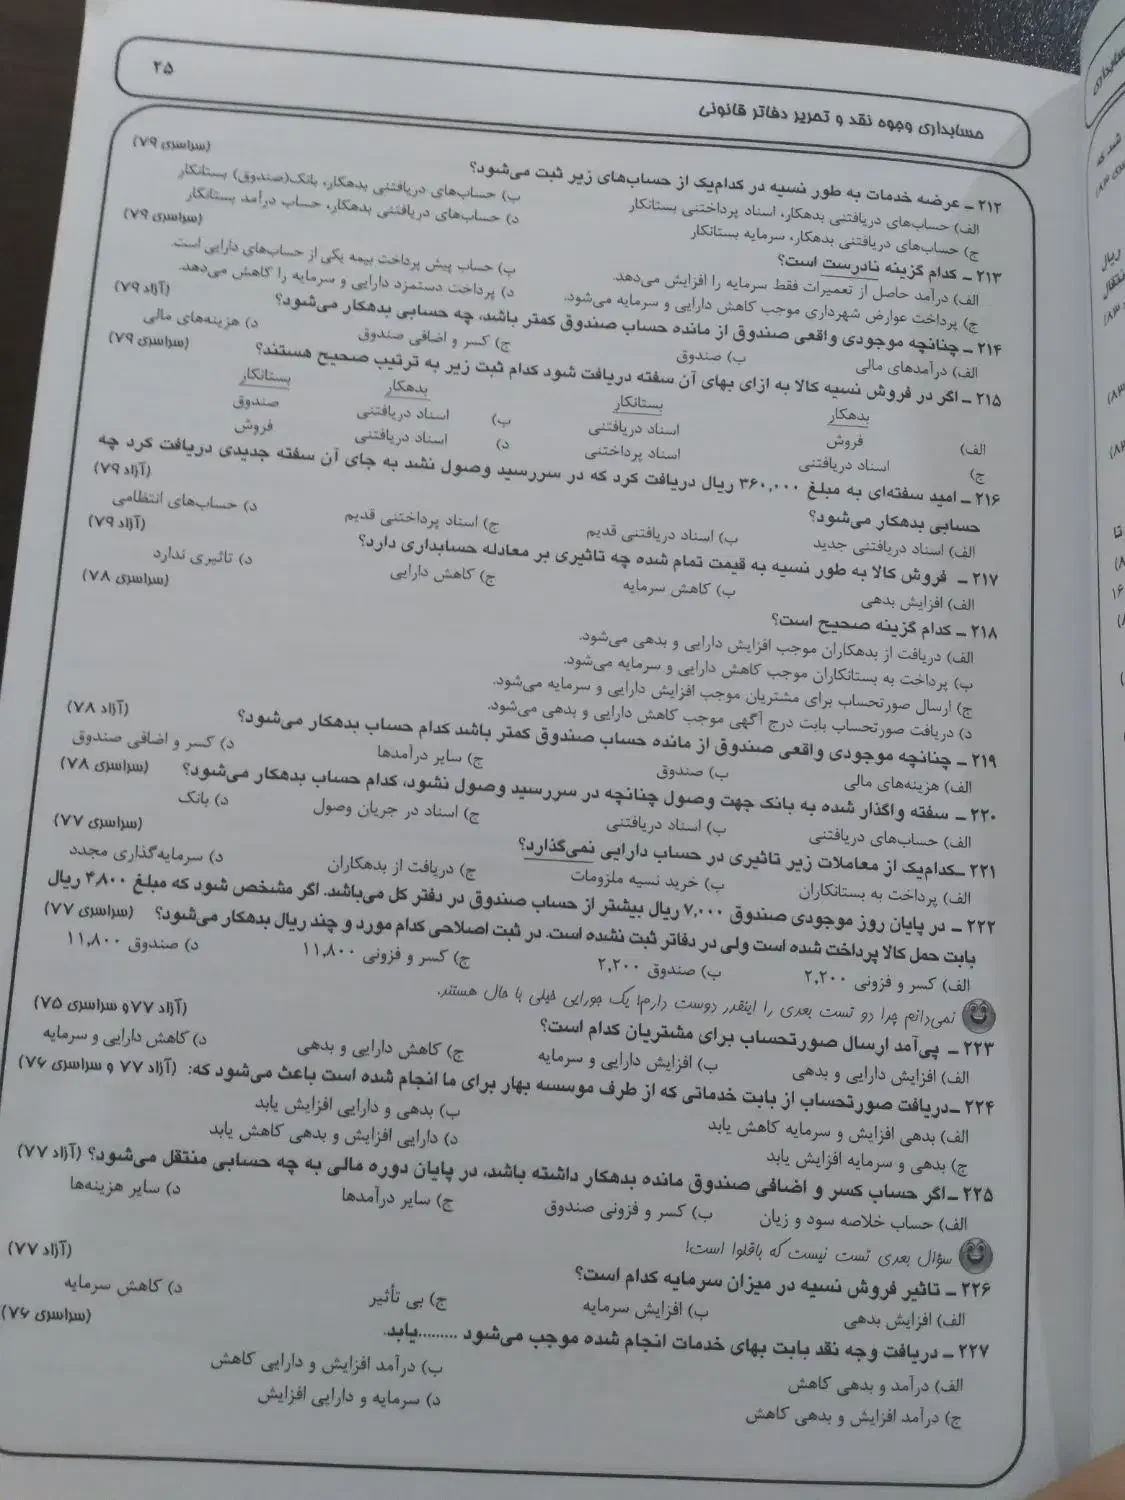 ۲۵
حسابداری وجوه نقد و تحریر دفاتر قانونی
۲۱۲ ـ عرضه خدمات به طور نسیه در کدام‌یک از حساب‌های زیر ثبت می‌شود؟ (سراسری ۷۹)
الف) حساب‌های دریافتنی بدهکار، اسناد پرداختنی بستانکار ب) حساب‌های دریافتنی بدهکار، بانک(صندوق) بستانکار
ج) حساب‌های دریافتنی بدهکار، سرمایه بستانکار د) حساب‌های دریافتنی بدهکار، حساب درآمد بستانکار
۲۱۳ ـ کدام گزینه نادرست است؟ (سراسری ۷۹)
الف) درآمد حاصل از تعمیرات فقط سرمایه را افزایش می‌دهد. ب) حساب پیش پرداخت بیمه یکی از حساب‌های دارایی است.
ج) پرداخت عوارض شهرداری موجب کاهش دارایی و سرمایه می‌شود. د) پرداخت دستمزد دارایی و سرمایه را کاهش می‌دهد.
۲۱۴ ـ چنانچه موجودی واقعی صندوق از مانده حساب صندوق کمتر باشد، چه حسابی بدهکار می‌شود؟ (آزاد ۷۹)
الف) درآمدهای مالی ب) صندوق ج) کسر و اضافی صندوق د) هزینه‌های مالی
۲۱۵ ـ اگر در فروش نسیه کالا به ازای بهای آن سفته دریافت شود کدام ثبت زیر به ترتیب صحیح هستند؟ (سراسری ۷۹)
بدهکار بستانکار بدهکار بستانکار
الف) فروش اسناد دریافتنی ب) اسناد دریافتنی صندوق
ج) اسناد دریافتنی اسناد پرداختنی د) اسناد دریافتنی فروش
۲۱۶ ـ امید سفته‌ای به مبلغ ۳۶۰,۰۰۰ ریال دریافت کرد که در سررسید وصول نشد به جای آن سفته جدیدی دریافت کرد چه
حسابی بدهکار می‌شود؟ (آزاد ۷۹)
الف) اسناد دریافتنی جدید ب) اسناد دریافتنی قدیم ج) اسناد پرداختنی قدیم د) حساب‌های انتظامی
۲۱۷ ـ فروش کالا به طور نسیه به قیمت تمام شده چه تاثیری بر معادله حسابداری دارد؟ (آزاد ۷۹)
الف) افزایش بدهی ب) کاهش سرمایه ج) کاهش دارایی د) تاثیری ندارد
۲۱۸ ـ کدام گزینه صحیح است؟ (سراسری ۷۸)
الف) دریافت از بدهکاران موجب افزایش دارایی و بدهی می‌شود.
ب) پرداخت به بستانکاران موجب کاهش دارایی و سرمایه می‌شود.
ج) ارسال صورتحساب برای مشتریان موجب افزایش دارایی و سرمایه می‌شود.
د) دریافت صورتحساب بابت درج آگهی موجب کاهش دارایی و بدهی می‌شود.
۲۱۹ ـ چنانچه موجودی واقعی صندوق از مانده حساب صندوق کمتر باشد کدام حساب بدهکار می‌شود؟ (آزاد ۷۸)
الف) هزینه‌های مالی ب) صندوق ج) سایر درآمدها د) کسر و اضافی صندوق
۲۲۰ ـ سفته واگذار شده به بانک جهت وصول چنانچه در سررسید وصول نشود، کدام حساب بدهکار می‌شود؟ (سراسری ۷۸)
الف) حساب‌های دریافتنی ب) اسناد دریافتنی ج) اسناد در جریان وصول د) بانک
۲۲۱ ـکدام‌یک از معاملات زیر تاثیری در حساب دارایی نمی‌گذارد؟ (سراسری ۷۷)
الف) پرداخت به بستانکاران ب) خرید نسیه ملزومات ج) دریافت از بدهکاران د) سرمایه‌گذاری مجدد
۲۲۲ ـ در پایان روز موجودی صندوق ۷,۰۰۰ ریال بیشتر از حساب صندوق در دفتر کل می‌باشد. اگر مشخص شود که مبلغ ۴,۸۰۰ ریال
بابت حمل کالا پرداخت شده است ولی در دفاتر ثبت نشده است. در ثبت اصلاحی کدام مورد و چند ریال بدهکار می‌شود؟ (سراسری ۷۷)
الف) کسر و فزونی ۲,۲۰۰ ب) صندوق ۲,۲۰۰ ج) کسر و فزونی ۱۱,۸۰۰ د) صندوق ۱۱,۸۰۰
نمی‌دانم چرا دو تست بعدی را اینقدر دوست دارم! یک جورایی خیلی با حال هستند.
۲۲۳ ـ پی‌آمد ارسال صورتحساب برای مشتریان کدام است؟ (آزاد ۷۷و سراسری ۷۵)
الف) افزایش دارایی و بدهی ب) افزایش دارایی و سرمایه ج) کاهش دارایی و بدهی د) کاهش دارایی و سرمایه
۲۲۴ ـدریافت صورتحساب از بابت خدماتی که از طرف موسسه بهار برای ما انجام شده است باعث می‌شود که: (آزاد ۷۷ و سراسری ۷۶)
الف) بدهی افزایش و سرمایه کاهش یابد ب) بدهی و دارایی افزایش یابد
ج) بدهی و سرمایه افزایش یابد د) دارایی افزایش و بدهی کاهش یابد
۲۲۵ ـاگر حساب کسر و اضافی صندوق مانده بدهکار داشته باشد، در پایان دوره مالی به چه حسابی منتقل می‌شود؟ (آزاد ۷۷)
الف) حساب خلاصه سود و زیان ب) کسر و فزونی صندوق ج) سایر درآمدها د) سایر هزینه‌ها
سؤال بعدی تست نیست که باقلوا است!
۲۲۶ ـ تاثیر فروش نسیه در میزان سرمایه کدام است؟ (آزاد ۷۷)
الف) افزایش بدهی ب) افزایش سرمایه ج) بی تأثیر د) کاهش سرمایه
۲۲۷ ـ دریافت وجه نقد بابت بهای خدمات انجام شده موجب می‌شود .........یابد. (سراسری ۷۶)
الف) درآمد و بدهی کاهش ب) درآمد افزایش و دارایی کاهش
ج) درآمد افزایش و بدهی کاهش د) سرمایه و دارایی افزایش